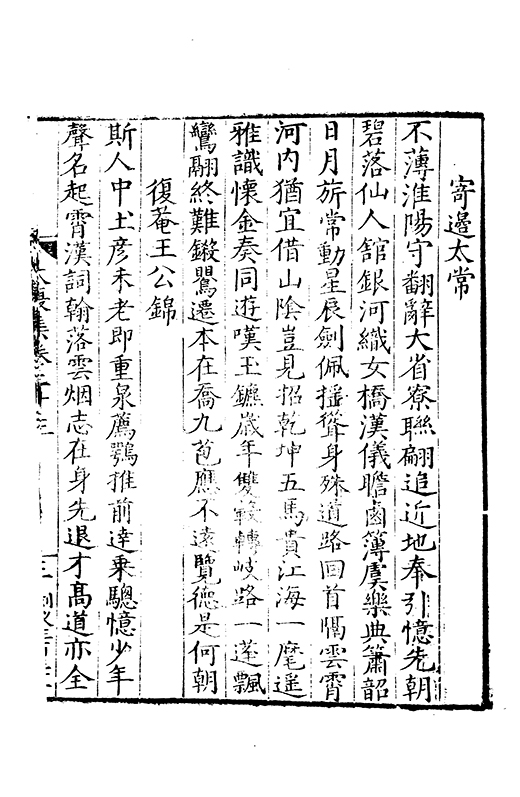 寄邊太常
不薄淮陽守翻辭大省寮聯翩追近地奉引憶先朝
碧落仙人舘銀河織女橋漢儀瞻鹵簿虞樂典簫韶
日月旂常動星辰劍佩揺聳身殊道路回首隔雲霄
河内猶宜借山陰豈見招乾坤五馬貴江海一麾遥
雅識懷金奏同遊嘆玉鑣歲年雙轂轉岐路一蓬飄
鸞翮終難鎩鶯遷本在喬九苞應不遠覽德是何朝
復菴王公錦
斯人中土彦未老即重泉薦鶚推前達乗驄憶少年
聲名起霄漢詞翰落雲烟志在身先退才髙道亦全
集卷二十三